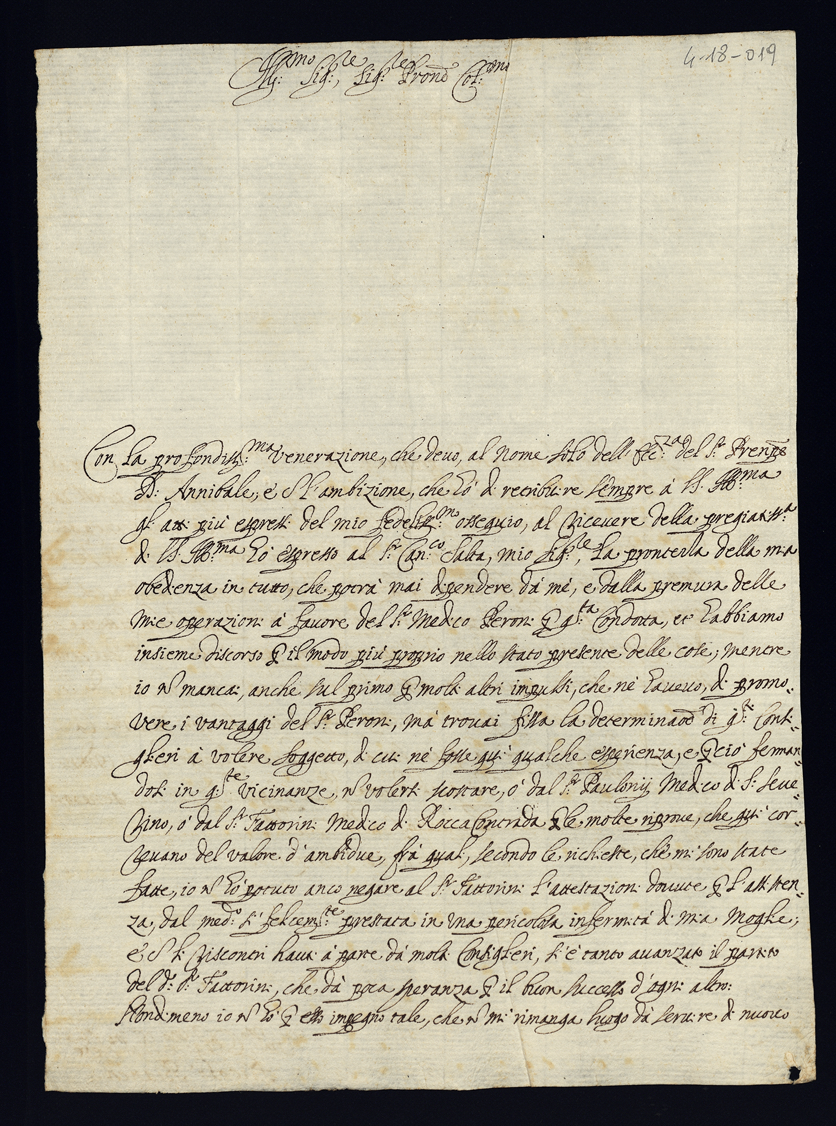 4-18-019
Ill:mo Sig:re, Sig:re Pron Col:mo
Con la profondiss:ma venerazione, che deuo, al Nome solo dell'Ecc:za del S:r Prenpe
D: Annibale, e l'ambizione, che hò di retribuire sempre à VS: Ill:ma
gl'atti più espressi del mio fedeliss:mo ossequio, al riceuere della pregiatiss:a
di VS: Ill:ma hò espresso al S:r Can:co Salta, mio Sig:re, la prontezza della mia
obedienza in tutto, che potrà mai dipendere dà mè, e dalla premura delle
mie operazioni à fauore del S:r Medico Peroni p q:ta Condotta, et habbiamo
insieme discorso p il modo più proprio nello stato presente delle cose; mentre
io nõ mancai, anche sul primo p molti altri impulsi, che nè haueuo, di promo-
uere i vantaggi del S:r Peroni, mà trouai fissa la determinaõe di q:ti Consi-
glieri à volere soggetto, di cui nè fosse qui qualche esperienza, e pciò ferman-
dosi in q:te vicinanze, nõ volersi scostare, ò dal S:r Paulonij Medico di S: Seue-
rino, ò dal S:r Fattorini Medico di Rocca Contrada p le molte riproue, che qui cor-
reuano del valore d'ambidue, frà quali, secondo le richieste, che mi sono state
fatte, io nõ hò potuto anco negare al S:r Fattorini l'attestazioni douute p l'assisten-
za, dal med:o sì felicem:te prestata in una pericolosa infermità di mia Moglie;
e li riscontri hauti à parte dà molti Consiglieri, si è tanto auanzato il partito
del d:o S:r Fattorini, che dà poca speranza p il buon successo d'ogni altro:
Nondimeno io nõ hò p esso impegno tale, che nõ mi rimanga luogo dà seruire di nuouo